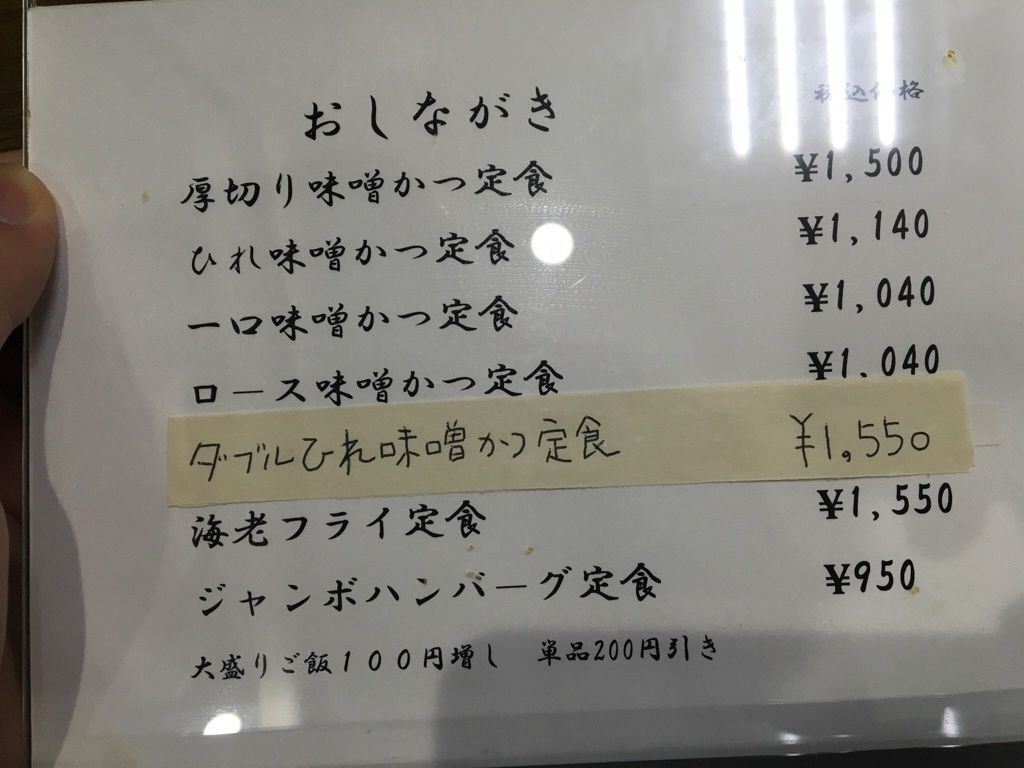 おしながき
税込価格
厚切り味噌かつ定食 ¥1,500
ひれ味噌かつ定食 ¥1,140
一口味噌かつ定食 ¥1,040
ロース味噌かつ定食 ¥1,040
ダブルひれ味噌かつ定食 ¥1,550
海老フライ定食 ¥1,550
ジャンボハンバーグ定食 ¥950
大盛りご飯１００円増し 単品200円引き